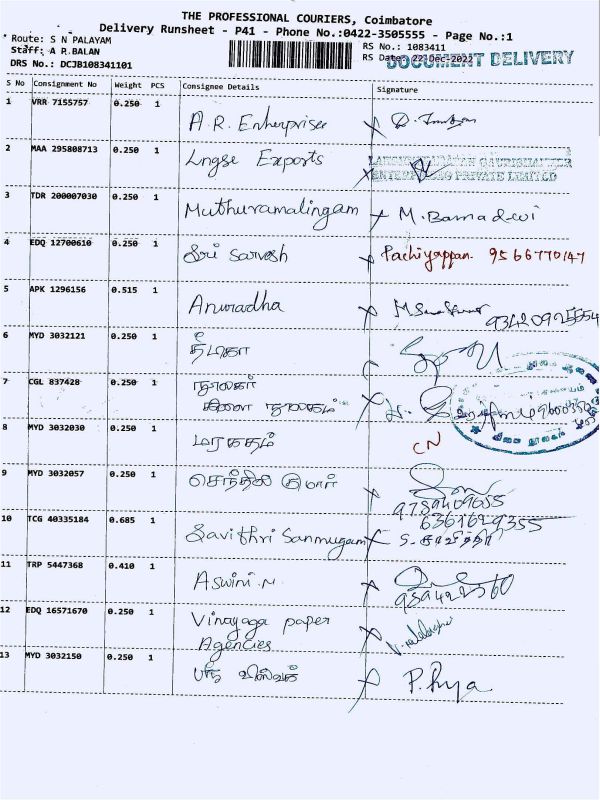 THE PROFESSIONAL COURIERS, Coimbatore
Delivery Runsheet - P41 - Phone No.:0422-3505555 - Page No.:1
Route: S N PALAYAM
Staff: A R.BALAN
DRS No.: DCJB108341101
RS No.: 1083411
RS Date: 22-Dec-2022
DOCUMENT DELIVERY
S No Consignment No Weight PCS Consignee Details Signature
1 VRR 7155757 0.250 1 A.R. Enterprises
2 MAA 295808713 0.250 1 Lngse Exports
PRIVATE LIMITED
3 TDR 200007030 0.250 1 Muthuramalingam M.Bamadevi
4 EDQ 12700610 0.250 1 Sri Sarvesh Pachiyappan 9566770147
5 APK 1296156 0.515 1 Anuradha
6 MYD 3032121 0.250 1
7 CGL 837428 0.250 1 நூலகர்
கிளை நூலகம்
8 MYD 3032030 0.250 1 மரகதம் CN
9 MYD 3032057 0.250 1 செந்தில் குமார்
9789409655
6361629355
10 TCG 40335184 0.685 1 Savithri Sanmugam S. சாவித்திரி
11 TRP 5447368 0.410 1 Aswini.N
12 EDQ 16571670 0.250 1 Vinayaga paper
Agencies
13 MYD 3032150 0.250 1 P. Priya